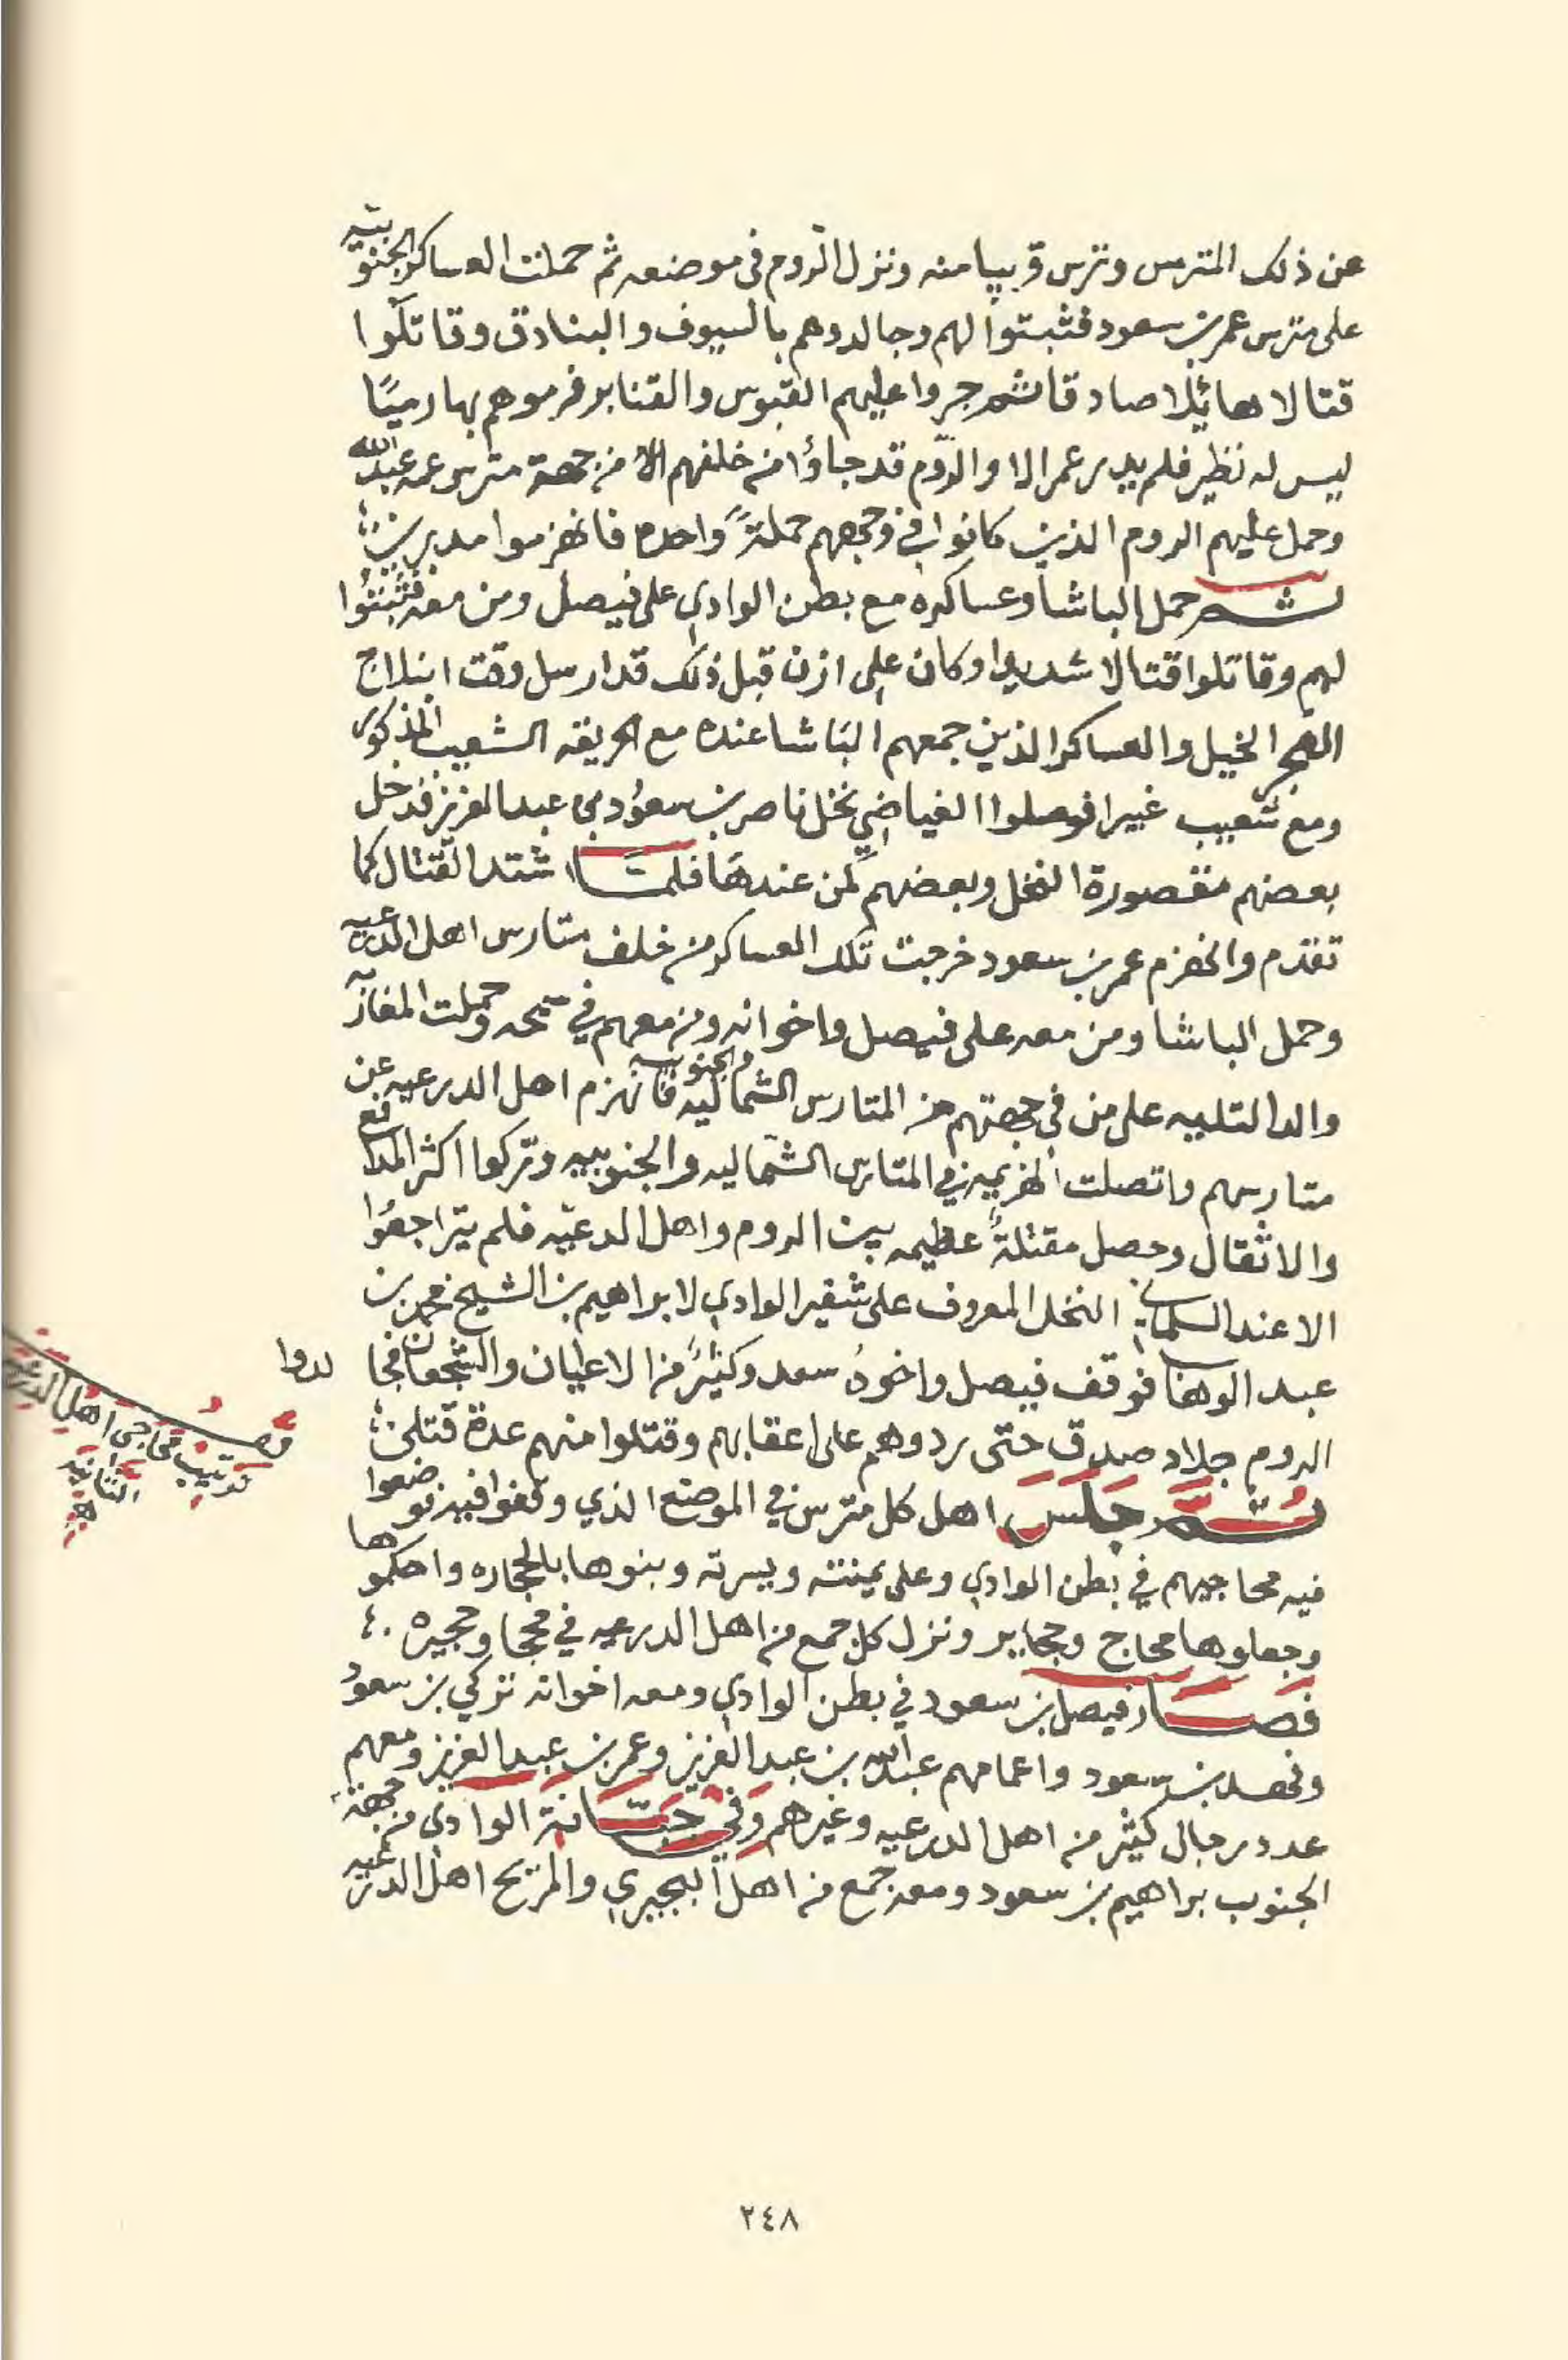 عن ذلك المترس وترس قريبا منه ونزل الروم في موضعه ثم حملت العساكر الجنوبيه
على مترس عمر بن سعود فثبتوا لهم وجالدوهم بالسيوف والبنادق وقاتلوا
قتالا هائلا صادقا ثم جروا عليهم القبوس والقنابر فرموهم بها رميًا
ليس له نظير فلم يدر عمر الا والروم قد جاؤا من خلفهم الا من جهة مترس عمه عبدالله
وحمل عليهم الروم الذين كانوا في وجههم حملةً واحده فانهزموا مدبرين
ثم حمل الباشا وعساكره مع بطن الوادي على فيصل ومن معه فثبتوا
لهم وقاتلوا قتالا شديدا وكان علي ازن قبل ذلك قد ارسل وقت ابتلاج
الفجر الخيل والعساكر الذين جمعهم الباشا عنده مع الحريقه الشعيب المذكور
ومع شعيب غبيرا فوصلوا الغياضي نخل ناصر بن سعود بن عبدالعزيز فدخل
بعضهم مقصورة النخل وبعضهم كمن عندها فلمّا اشتد القتال كما
تقدم وانهزم عمر بن سعود خرجت تلك العساكر من خلف متارس اهل الدرعيه
وحمل الباشا ومن معه على فيصل واخوانه ومن معهم في سمحه وحملت المغاربه
والدالتليه على من في جهتهم من المتارس الشماليه والجنوبيه فانهزم اهل الدرعيه عن
متارسهم واتصلت الهزيمه في المتارس الشماليه والجنوبيه وتركوا اكثر المدافع
والاثقال وحصل مقتلةً عظيمه بين الروم واهل الدرعيّه فلم يتراجعوا
الا عند السلماني النخل المعروف على شفير الوادي لابراهيم بن الشيخ محمد بن
عبد الوهاب فوقف فيصل واخوهُ سعد وكثيرٌ من الاعيان والشجعان فجا
لدوا
الروم جلاد صدق حتى ردوهم على اعقابهم وقتلوا منهم عدة قتلى
ثُمَّ جَلَسَ اهل كل مترس في الموضع الذي وقفوا فيه فوضعوا
فيه محاجيهم في بطن الوادي وعلى يمنته ويسرته وبنوها بالحجاره واحكموها
وجعلوها محاج وحجاير ونزل كل جمع من اهل الدرعيه في محجا وحجيره
فَصَار فيصل بن سعود في بطن الوادي ومعه اخوانه تركي بن سعود
وفهد بن سعود واعمامهم عبدالله بن عبدالعزيز وعمر بن عبدالعزيز ومعهم
عدد رجال كثير من اهل الدرعيه وغيرهم وَفِي جَبّانة الوادي من جهة
الجنوب براهيم بن سعود ومعه جمع من اهل البجيري والمريح اهل الدرعيه
ترتيب محاجى اهل
الثانيه
٢٤٨